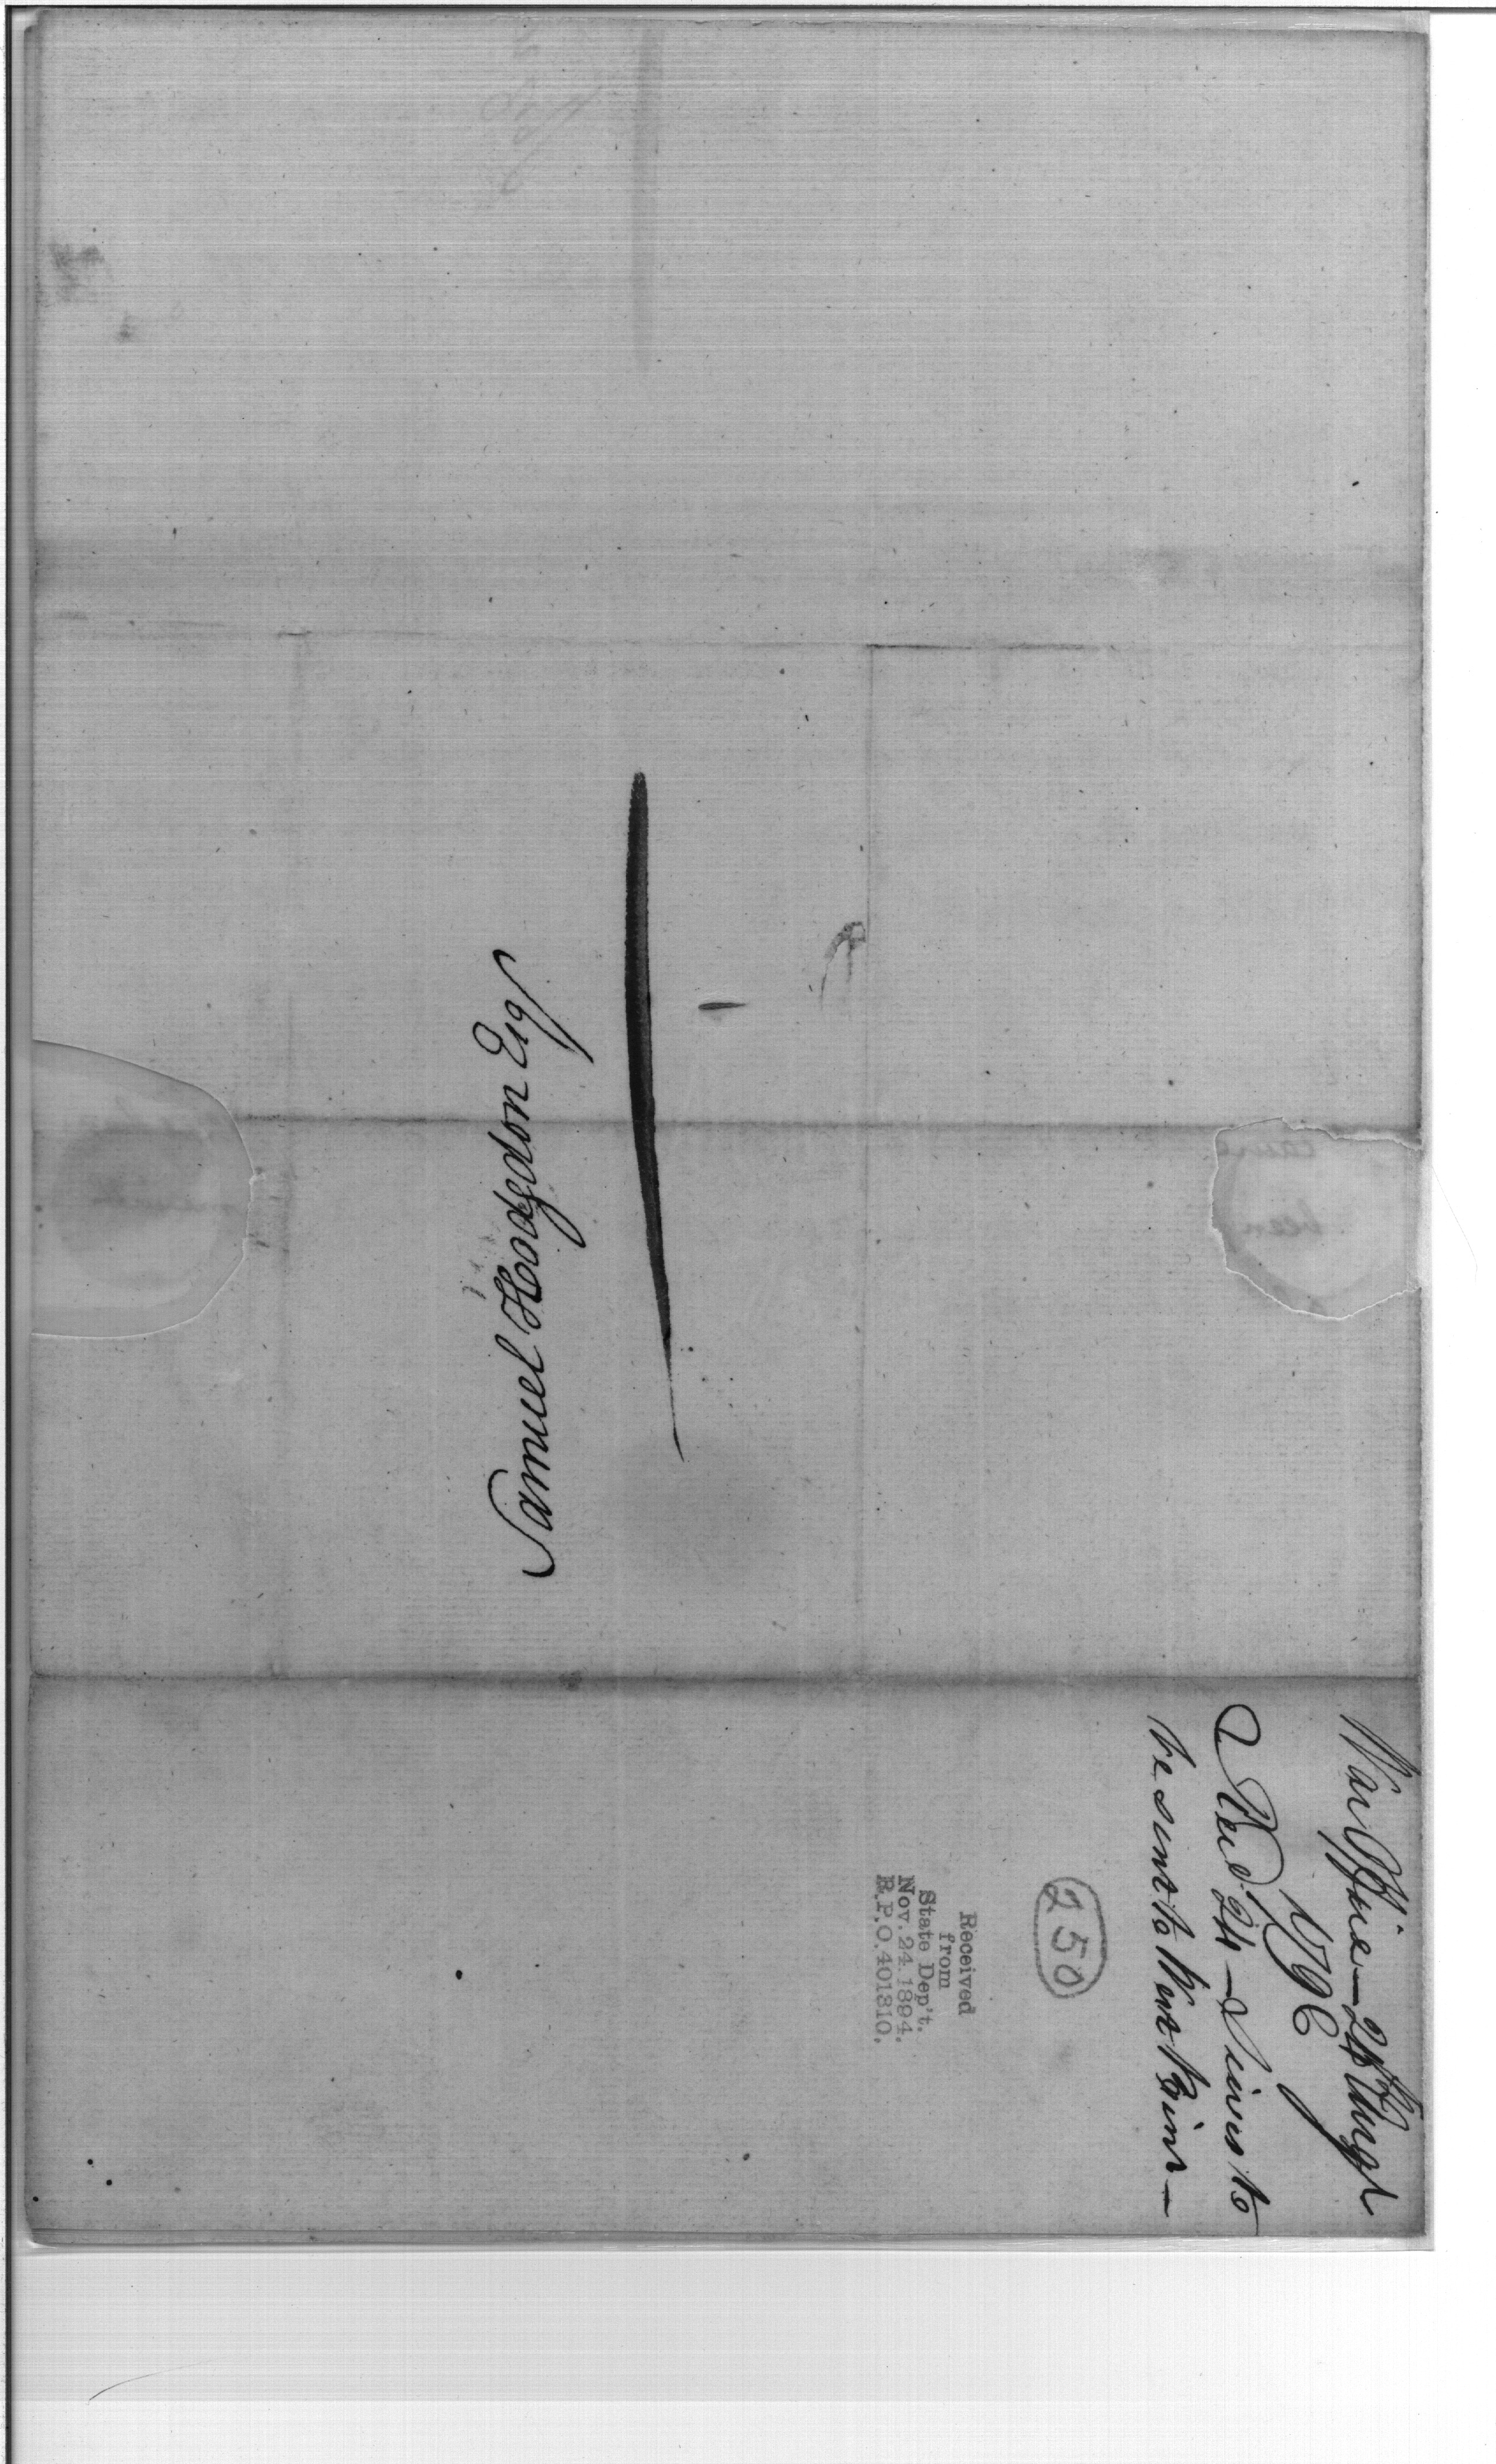 Samuel Hodgdon Esq
War Office — 24th Augt
179
Recd 24 — Sieves to
be sent to West Point —
250
Received
from
State Dep't.
Nov. 24. 1894.
R.P.O. 401310.